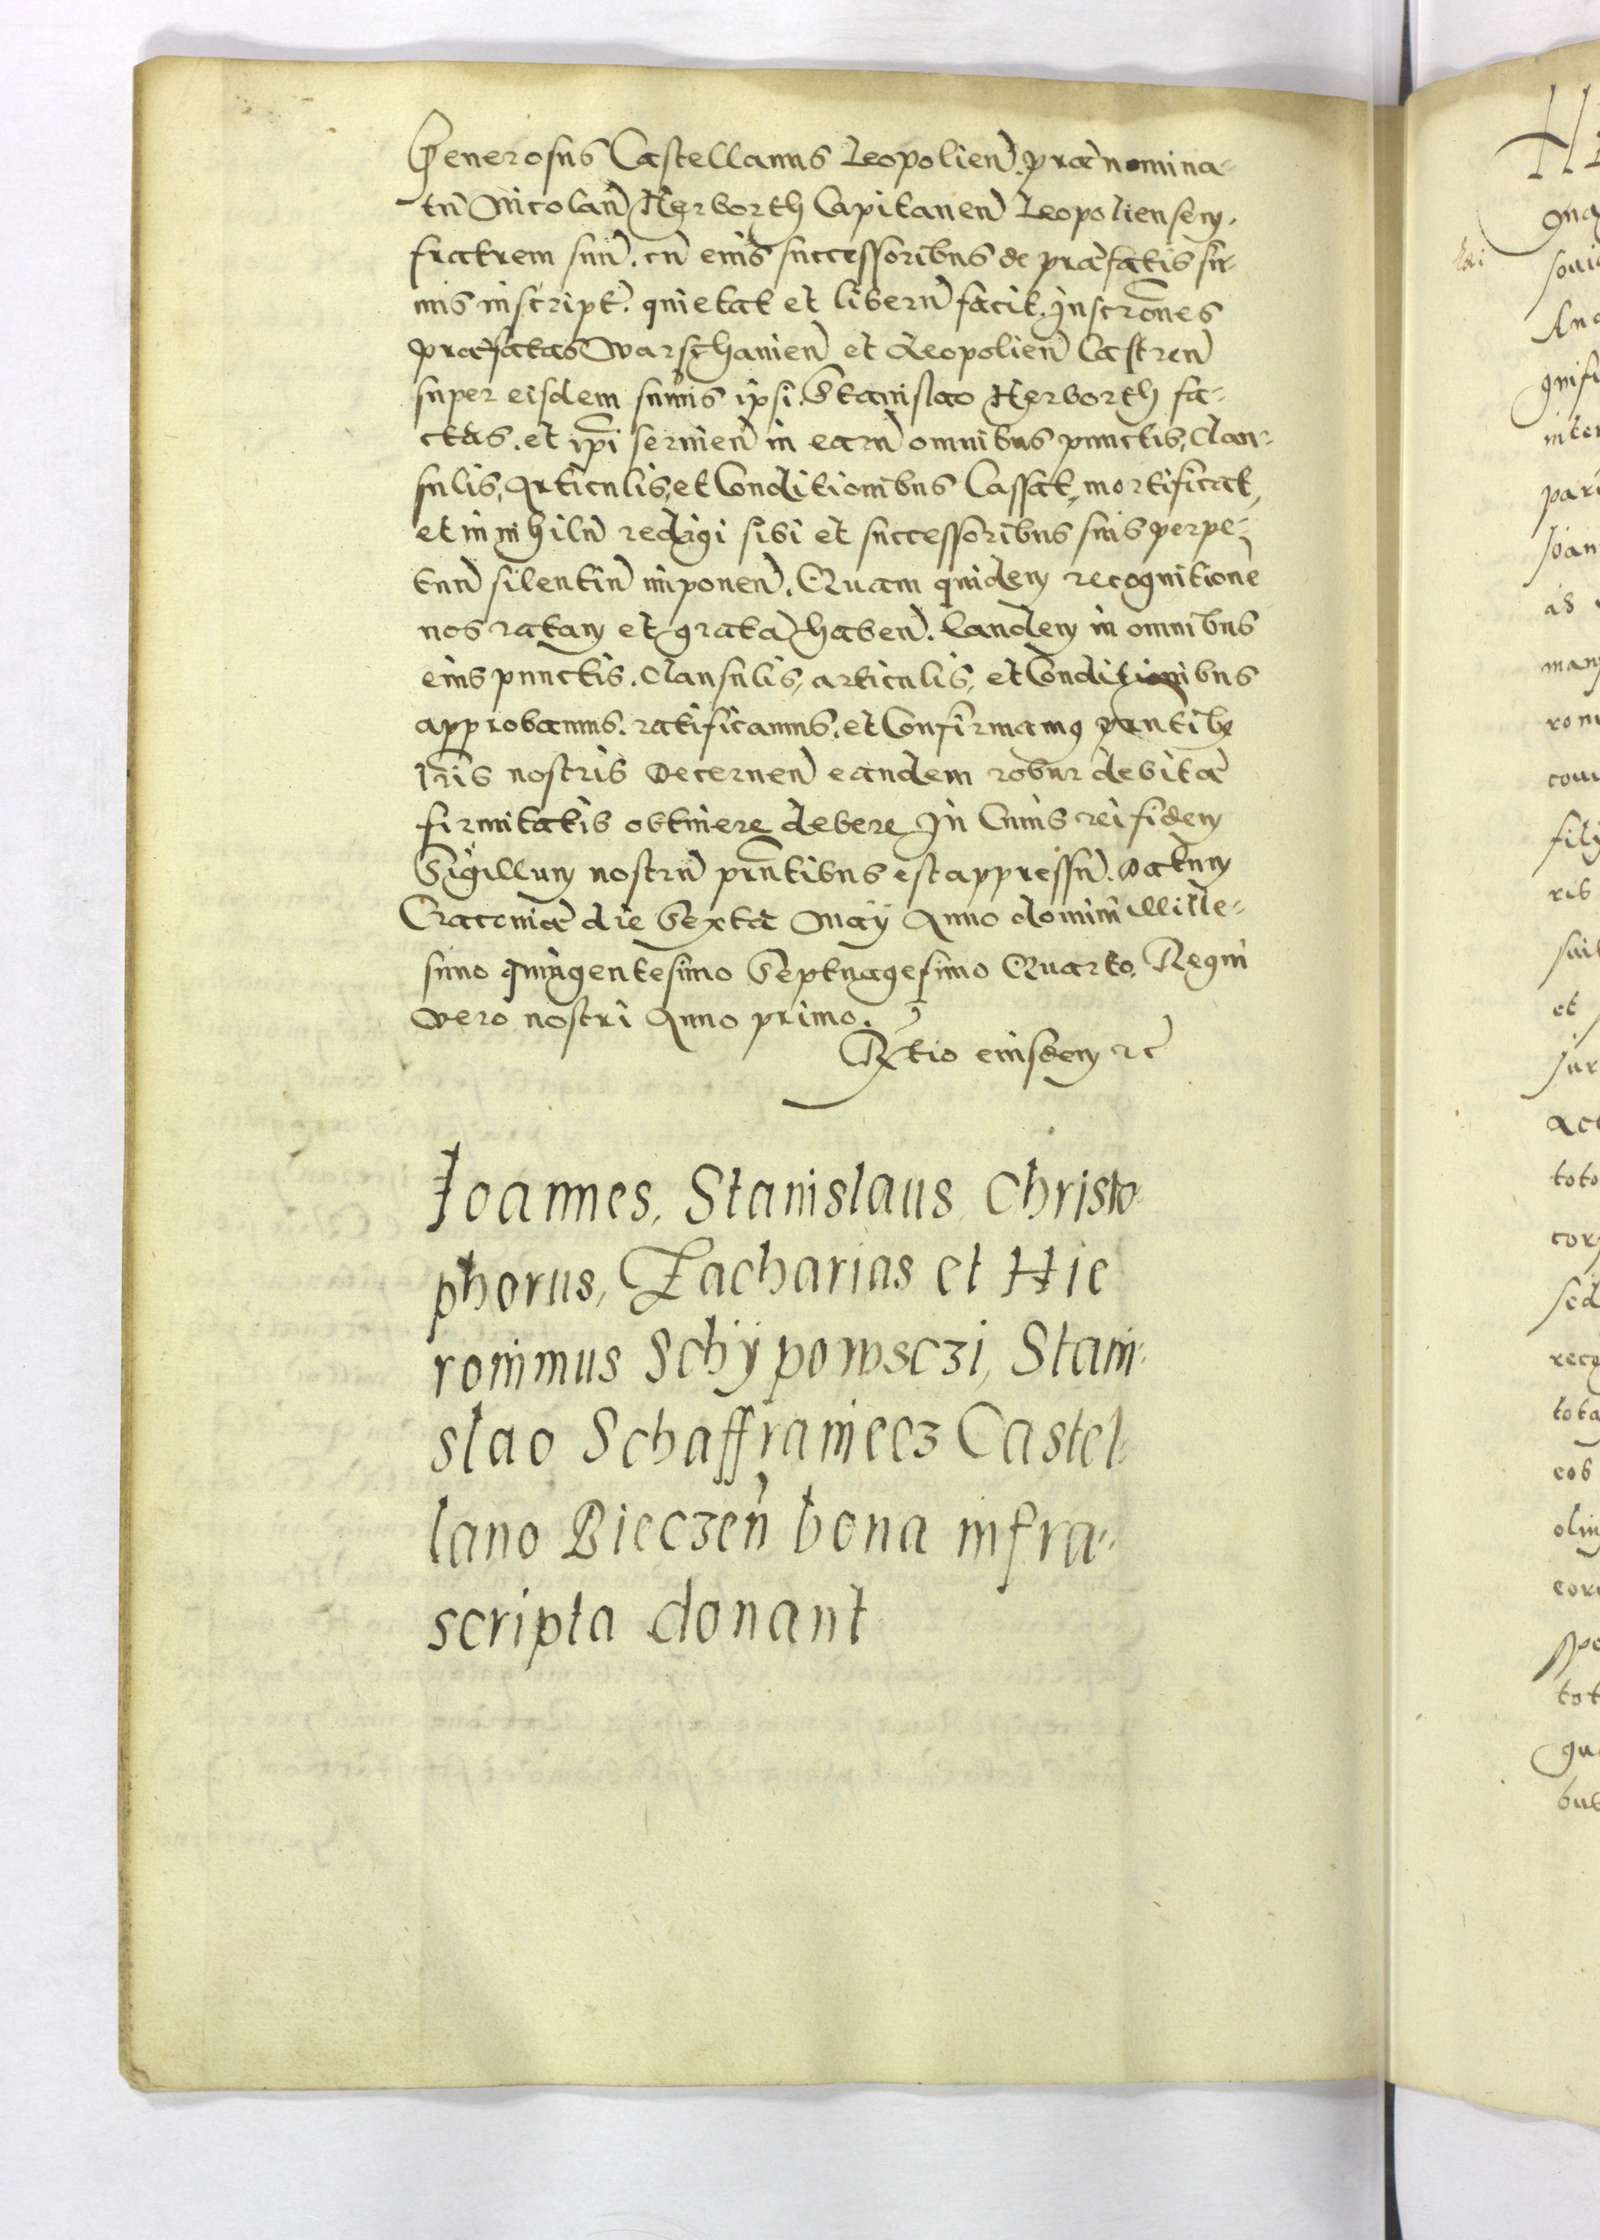 Generosus Castellanus Leopolien̄. prænomina-
tū Nicolaū Herborth Capitaneū Leopoliensem.
fratrem suū. cū eius successoribus de præfatis sū-
mis inscript̄. quietat et liberū facit. Inscr̄ones
præfatas Warschauien̄ et Leopolien̄ Castren̄
super eisdem sum̄is ipsi Stanislao Herborth fa-
ctas. et ip̄i seruien̄ in earū omnibus punctis, clau-
sulis, Articulis, et Conditionibus Cassat, mortificat,
et in nihilū redigi sibi et successoribus suis perpe-
tuū silentiū imponen̄. Quam quidem recognitionē
nos ratam et gratā haben̄. Eandem in omnibus
eius punctis. clausulis, articulis, et Conditionibus
approbamus. ratificamus. et Confirmamus p̄ntibus
l̄ris nostris decernen̄ eandem robur debitæ
firmitatis obtinere debere. In Cuius rei fidem
Sigillum nostrū pr̄ntibus est appressū. Datum
Cracouiæ die Sexta Maÿ Anno domini Mille-
simo quingentesimo Septuagesimo Quarto. Regni
vero nostri Anno primo.
R̄tio eiusdem ꝛc̄
Ioannes, Stanislaus Christo-
phorus, Zacharias et Hie
ronimus Schÿpowsczi, Stani-
slao Schaffraniecz Castel-
lano Bieczen̄ bona infra-
scripta donant